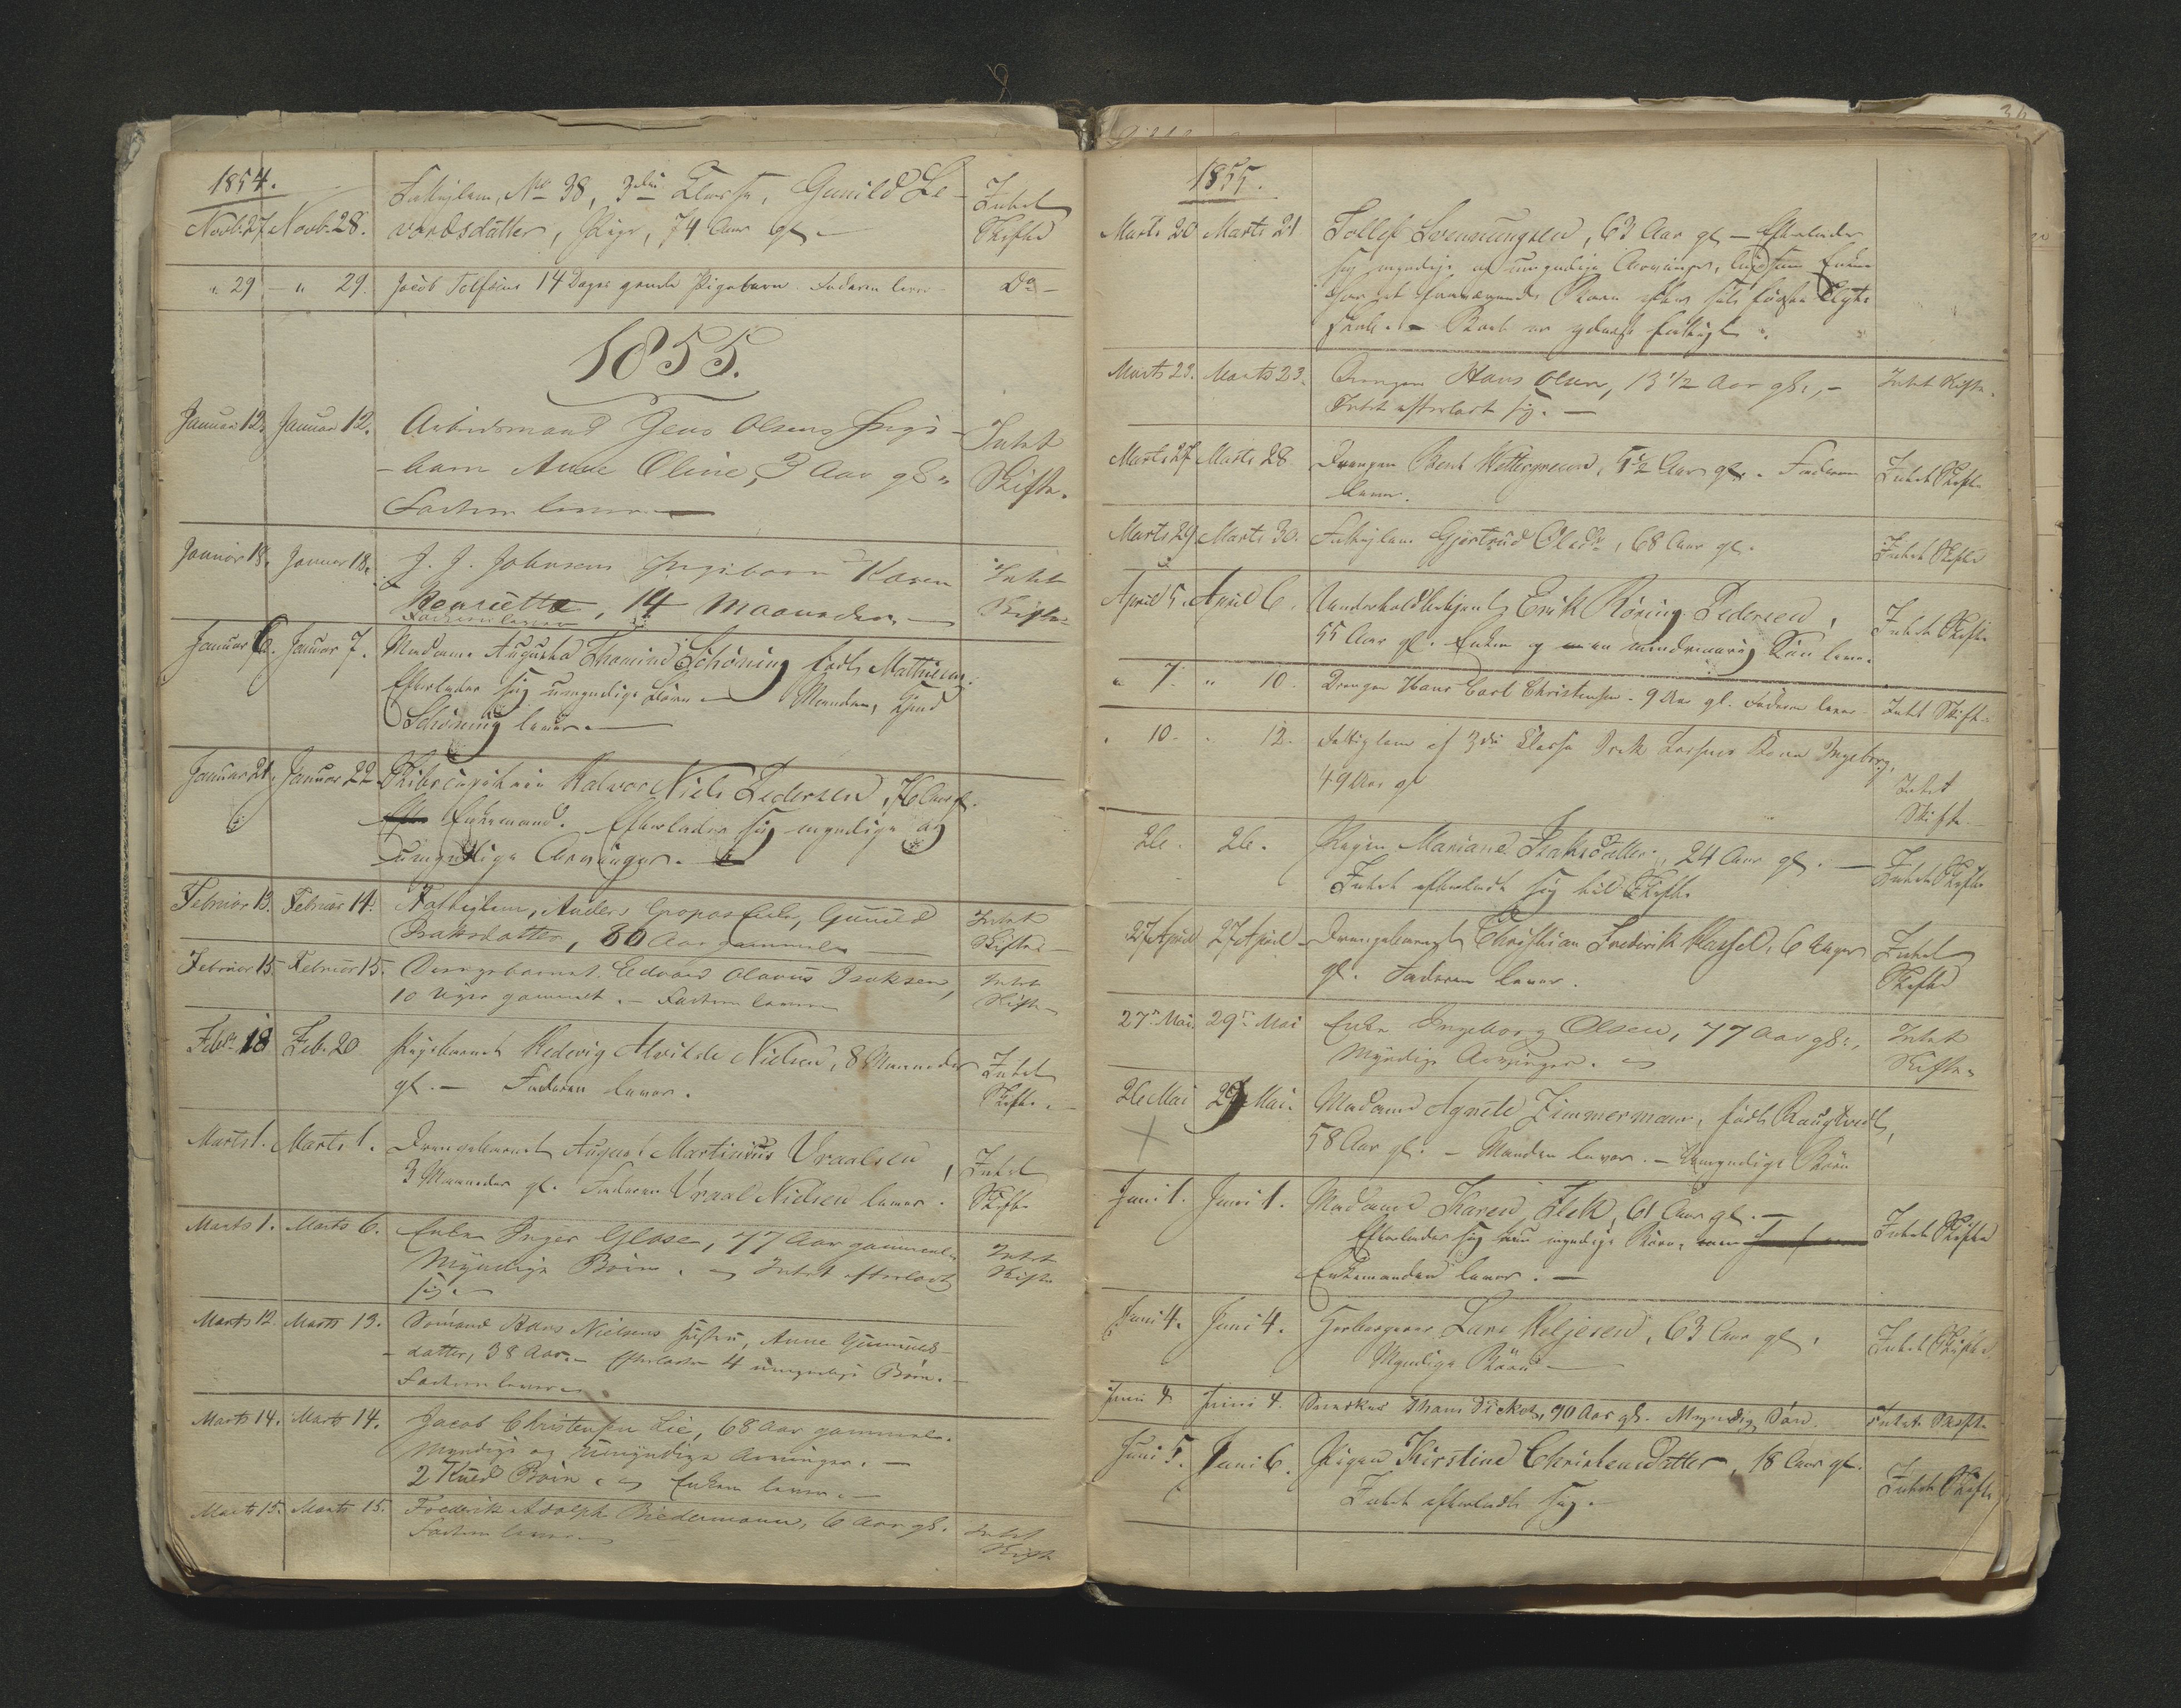 1854.
Novb. 27. Novb. 28. Fattiglem, No 38, 3die Classe, Gunild Le- Intet
vordsdatter, Pige, 74 Aar gl. – Skifte
" 29 – " 29. Jacob Tolfsens 14 Dage gamle Pigebarn. Faderen lever – Do –
1855.
Januar 12. Januar 12. Arbeidsmand Jens Olsens Pige- Intet
-barn Anne Oline, 3 Aar gl. Skifte.
Faderen lever. –
Januar 18. Januar 18. J. J. Johnsens Pigebarn Karen Intet
Henriette, 14 Maaneder. – Skifte
Faderen lever
Januar 6. Januar 7. Madame Augusta Schöning født Mathiesen.
Efterlader sig umyndige Börn – Manden,
Schöning lever. –
Januar 21. Januar 22. Skibscapitain Halvor Niels Pedersen, 76 Aar gl.
Enkemand. Efterlader sig myndige og
umyndige Arvinger.
Februar 13. Februar 14. Fattiglem, Anders Enke, Gunild Intet
Isaksdatter, 80 Aar gammel Skifte –
Februar 15. Februar 15. Drengebarnet Edvard Olavus Isaksen, Intet
10 Uger gammelt. – Faderen lever Skifte –
Febr. 18 Feb. 20 Pigebarnet Hedevig Alvilde Nielsen, 8 Maaneder Intet
gl. – Faderen lever. Skifte. –
Marts 1. Marts 1. Drengebarnet August Martinius Vraalsen, Intet
3 Maaneder gl. Faderen Vraal Nielsen lever. Skifte
Marts 1. Marts 6. Enke Inger Glose, 77 Aar gammel Intet
Myndige Börn. – Intet efterladt Skifte
sig. –
Marts 12. Marts 13. Sömand Hans Nielsens Hustru, Anne Gunnuls-
-datter, 38 Aar. – Efterlader 4 umyndige Börn. –
Faderen lever –
Marts 14. Marts 14. Jacob Christensen Lie, 68 Aar gammel.
Myndige og umyndige Arvinger. –
2 Kuld Börn. – Enken lever. –
Marts 15. Marts 15. Frederik Adolph Biedermann, 6 Aar gl. Intet
Faderen lever – Skifte
1855.
Marts 20 Marts 21 Tollef Svennungsen, 63 Aar gl – Efterlader
sig myndige og umyndige Arvinger, ligesom Enken
har et Barn efter sit første Ægte-
skab. – Boet er yderst fattigt.
Marts 23. Marts 23. Drengen Hans Olsen, 13 1/2 Aar gl., – Intet Skifte.
Intet efterladt sig. –
Marts 27 Marts 28 Drengen Bent 5 1/2 Aar gl. Faderen Intet Skifte
lever.
Marts 29 Marts 30. Fattiglem Gjertrud Olsdr, 68 Aar gl. Intet Skifte
April 5. April 6. Underholdbetjent Erik Röring Pedersen, Intet Skifte
55 Aar gl. Enken og en mindreaarig Sön lever.
" 7. " 10. Drengen Hans Carl Christensen. 9 Aar gl. Faderen lever – Intet Skifte
" 10. " 12. Fattiglem af 3die Classe Larsens Kone Ingeborg, Intet
49 Aar gl Skifte
26. 26. Pigen Mariane Isaksdatter, 24 Aar gl. – Intet Skifte
Intet efterladt sig til Skifte
27 April 27 April Drengebarnet Christian Frederik Hassel, 6 Uger Intet
gl. Faderen lever. Skifte
27de Mai. 29de Mai Enke Ingeborg Olsen, 77 Aar gl., Intet
Myndige Arvinger. Skifte.
26 Mai 29 Mai. Madame Agnete Zimmermann, født
58 Aar gl. – Manden lever. – Umyndige Börn
Juni 1. Juni 1. Madame Karen Falck, 61 Aar gl. – Intet Skifte
Efterlader sig myndige Börn.
Enkemanden lever. –
Juni 4. Juni 4. Lars 63 Aar gl. Intet Skifte
Myndige Börn –
Juni 4. Juni 4. 90 Aar gl. – Myndig Sön. Intet Skifte
Juni 5. Juni 6. Pigen Kirstine Christensdatter, 18 Aar gl. Intet Skifte
Intet efterladt sig. –